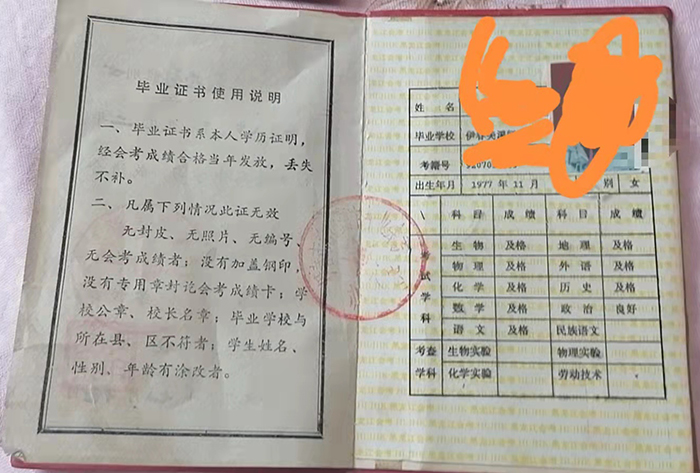 毕业证书使用说明
一、毕业证书系本人学历证明，
经会考成绩合格当年发放，丢失
不补。
二、凡属下列情况此证无效
无封皮、无照片、无编号、
无会考成绩者；没有加盖钢印，
没有专用章封讫会考成绩卡；学
校公章、校长名章；毕业学校与
所在县、区不符者；学生姓名、
性别、年龄有涂改者。
姓名
毕业学校 伊春美溪
考籍号
出生年月 1977年11月 别 女
科目 成绩 科目 成绩
考试学科
生物 及格 地理 及格
物理 及格 外语 及格
化学 及格 历史 及格
数学 及格 政治 良好
语文 及格 民族语文
考查学科
生物实验 物理实验
化学实验 劳动技术